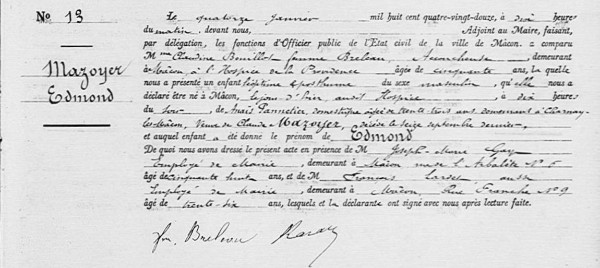 No 13
Mazoyer
Edmond
Le quatorze Janvier mil huit cent quatre-vingt-douze, à dix heures
du matin, devant nous, Adjoint au Maire, faisant,
par délégation, les fonctions d'Officier public de l'État civil de la ville de Mâcon. a comparu
Mme Claudine Bouillot femme Breleau, Accoucheuse, demeurant
à Mâcon à l'hospice de la Providence âgée de cinquante ans, la quelle
nous a présenté un enfant légitime posthume du sexe masculin, qu'elle nous a
déclaré être né à Mâcon, le jour d'hier audit Hospice, à dix heures
du soir, de Anaïs Pannetier, domestique âgée de trente trois ans demeurant à Charnay-
les-Mâcon, Veuve de Claude Mazoyer, décédé le seize septembre dernier,
et auquel enfant a été donné le prénom de Edmond
De quoi nous avons dressé le présent acte en présence de M Joseph Marie Guy
Employé de Mairie, demeurant à Mâcon rue de l'Arbalète No 5
âgé de cinquante huit ans, et de M François Lardet aussi
Employé de Mairie, demeurant à Mâcon, Rue Franche No 9
âgé de trente-six ans, lesquels et la déclarante ont signé avec nous après lecture faite.
fme Breleau